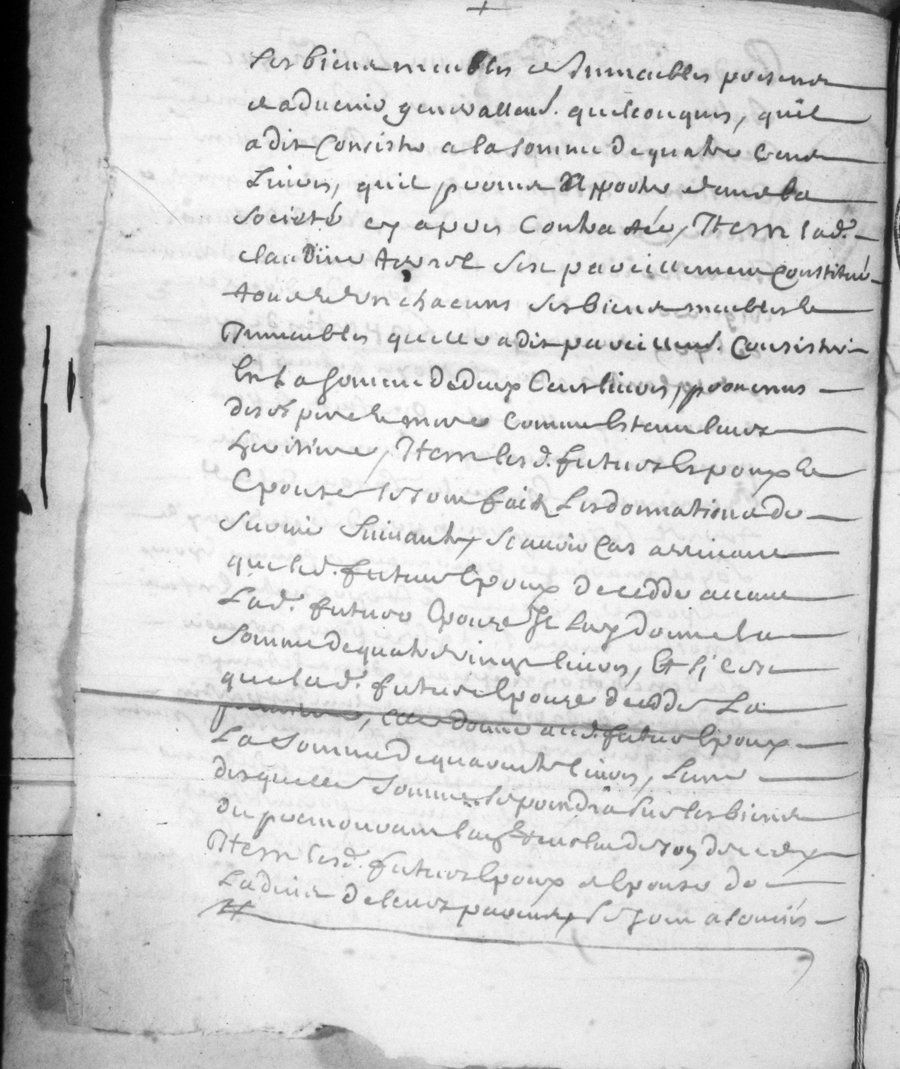 ses biens meubles et Immeubles presens
et aduenir generallem.t quelconques, quil
a dit Consister a la somme de quatre Cens
Liures, quil promet Apporter dans la
societé cy apres Contractée, Item lad.e
claudine sest pareillement Constitué
tous et un chacuns ses biens meubles et
Immeubles quelle a dit pareillem.t Consister
En La somme de deux Cens liures, prouenus
de ses pere et mere Comme Estant leurs
heritiere, Item lesd. futurs Espoux et
Epouse se sont fait Les donnations de
suruie suiuantes, scauoir Cas arriuant
que led. futur Epoux decedde auant
Lad. future Epouse Il luy donne la
somme de quatre vingt liures, Et si cest
que lad. future Epouse decedde La
premiere, elle donne aud. futur Epoux
La somme de quarante liures, Lune
desquelles sommes se prendra sur les biens
du premourant
Item lesd. futurs Epoux et Epouse de
Laduis de leurs parens, se sont associés